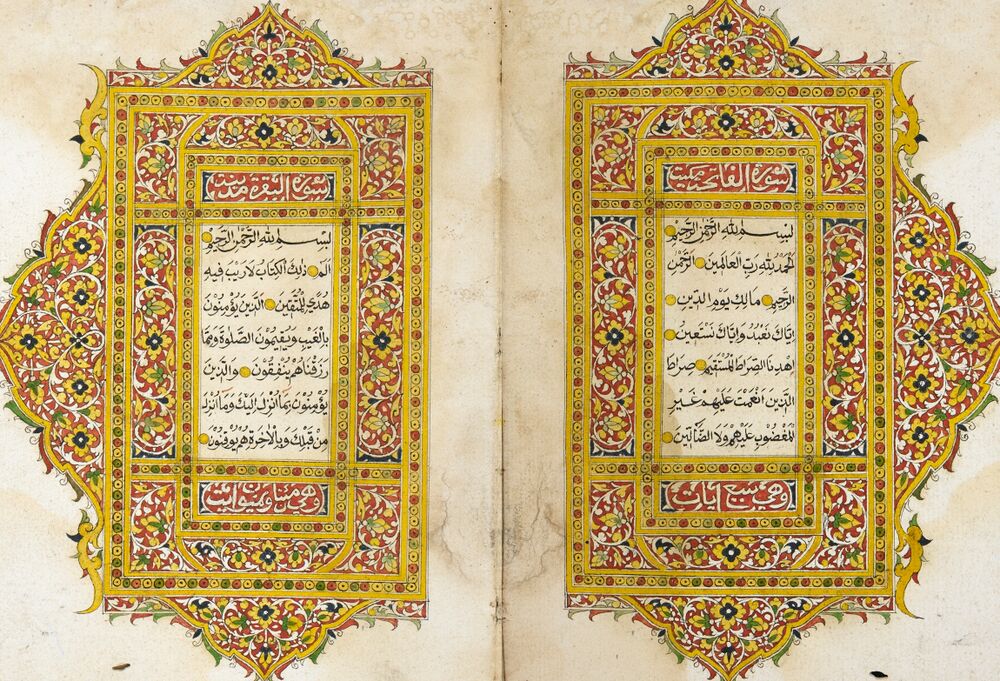 سورة الفاتحة مكية
بِسْمِ اللهِ الرَّحْمٰنِ الرَّحِيْمِ
اَلْحَمْدُ لِلهِ رَبِّ الْعَالَمِيْنَ الرَّحْمٰنِ
الرَّحِيْمِ مَالِكِ يَوْمِ الدِّيْنِ
اِيَّاكَ نَعْبُدُ وَاِيَّاكَ نَسْتَعِيْنُ
اِهْدِنَا الصِّرَاطَ الْمُسْتَقِيْمَ صِرَاطَ
الَّذِيْنَ اَنْعَمْتَ عَلَيْهِمْ غَيْرِ
الْمَغْضُوْبِ عَلَيْهِمْ وَلَا الضَّآلِّيْنَ
وهي سبع ايات
سورة البقرة مدنية
بِسْمِ اللهِ الرَّحْمٰنِ الرَّحِيْمِ
الم ذٰلِكَ الْكِتَابُ لَا رَيْبَ فِيْهِ
هُدًى لِلْمُتَّقِيْنَ الَّذِيْنَ يُؤْمِنُوْنَ
بِالْغَيْبِ وَيُقِيْمُوْنَ الصَّلٰوةَ وَمِمَّا
رَزَقْنَاهُمْ يُنْفِقُوْنَ وَالَّذِيْنَ
يُؤْمِنُوْنَ بِمَا اُنْزِلَ اِلَيْكَ وَمَا اُنْزِلَ
مِنْ قَبْلِكَ وَبِالْاٰخِرَةِ هُمْ يُوْقِنُوْنَ
وهي